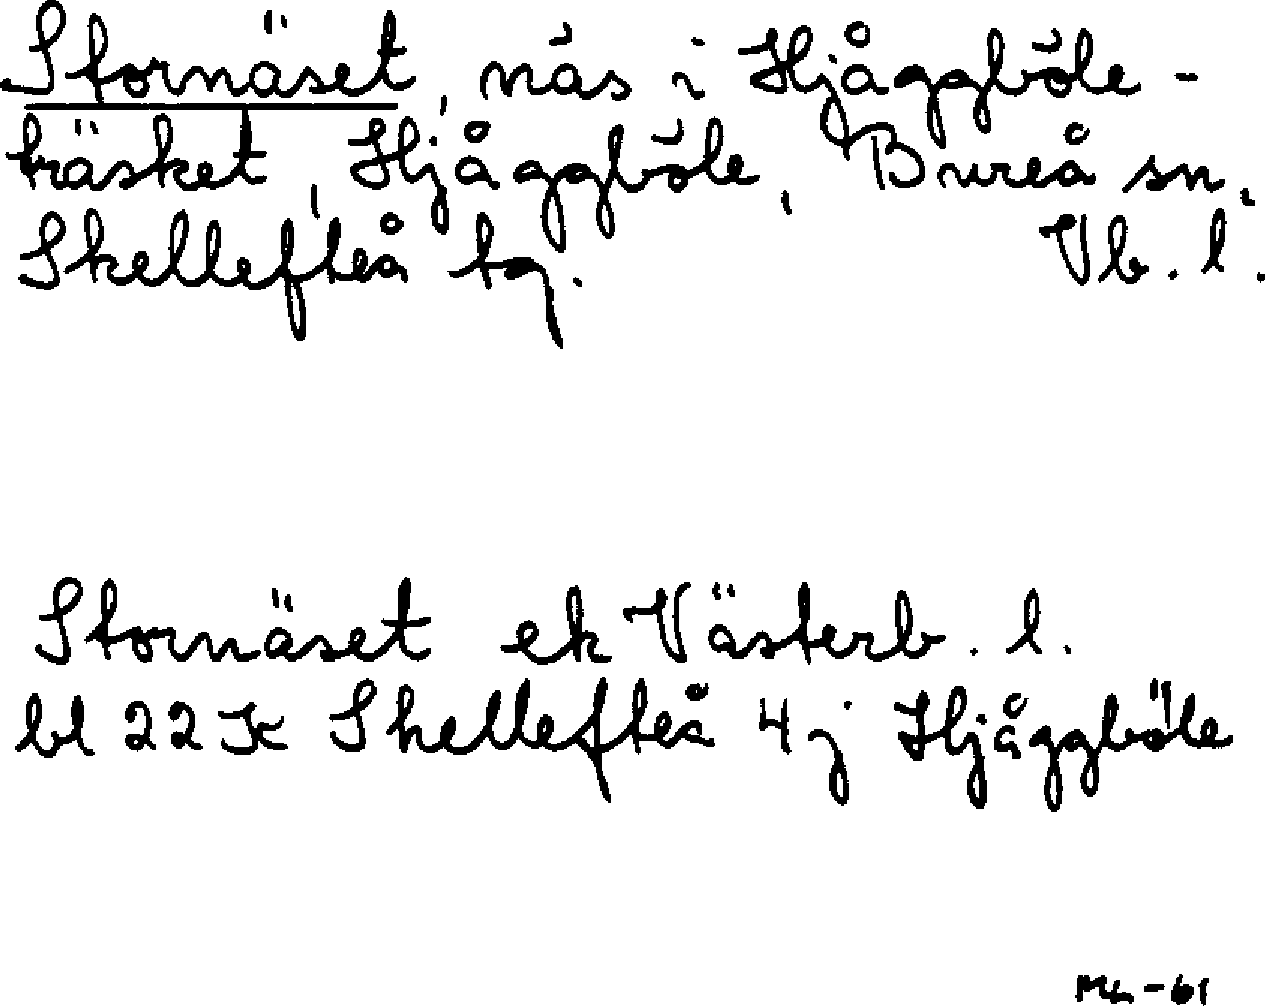 Stornäset, näs i Hjåggböle-
träsket, Hjåggböle, Bureå sn,
Skellefteå tg. Vb. l.
Stornäset ek Västerb. l.
bl 22 K Skellefteå 4 j Hjåggböle
-61